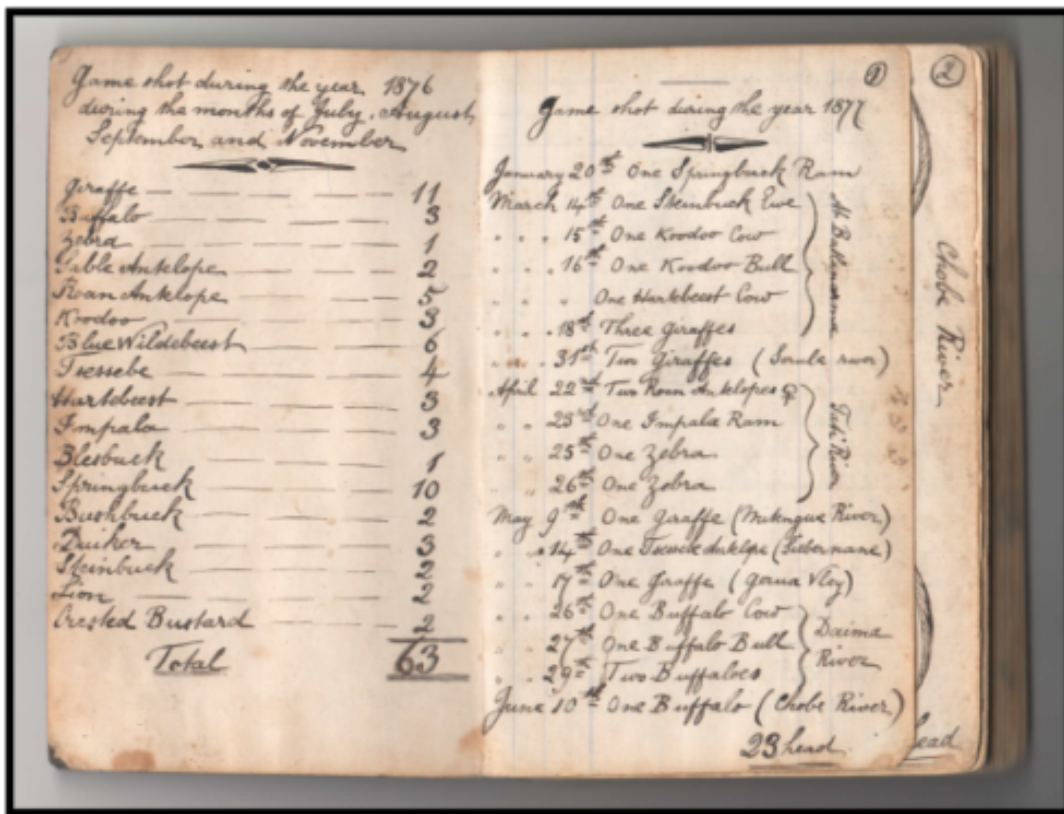 Game shot during the year 1876
during the months of July, August,
September and November
Giraffe 11
Buffalo 3
Zebra 1
Sable Antelope 2
Roan Antelope 5
Koodoo 3
Blue Wildebeest 6
Tsessebe 4
Hartebeest 3
Impala 3
Blesbuck 1
Springbuck 10
Bushbuck 2
Duiker 3
Steinbuck 2
Lion 2
Crested Bustard 2
Total 63
1
Game shot during the year 1877
January 20th One Springbuck Ram
March 14th One Steinbuck Ewe
" " 15th One Koodoo Cow
" " 16th One Koodoo Bull
" " " One Hartebeest Cow
" " 18th Three Giraffes
At
" " 31st Two Giraffes (Serule river)
April 22nd Two Roan Antelopes
" " 23rd One Impala Ram
" " 25th One Zebra
" " 26th One Zebra
Tati River
May 9th One Giraffe (River)
" " 14th One Antelope
" " 17th One Giraffe (Vley)
" " 26th One Buffalo Cow
" " 27th One Buffalo Bull
" " 29th Two Buffaloes
Daima
River
June 10th One Buffalo (Chobe River)
23 head
2
Chobe River
ead